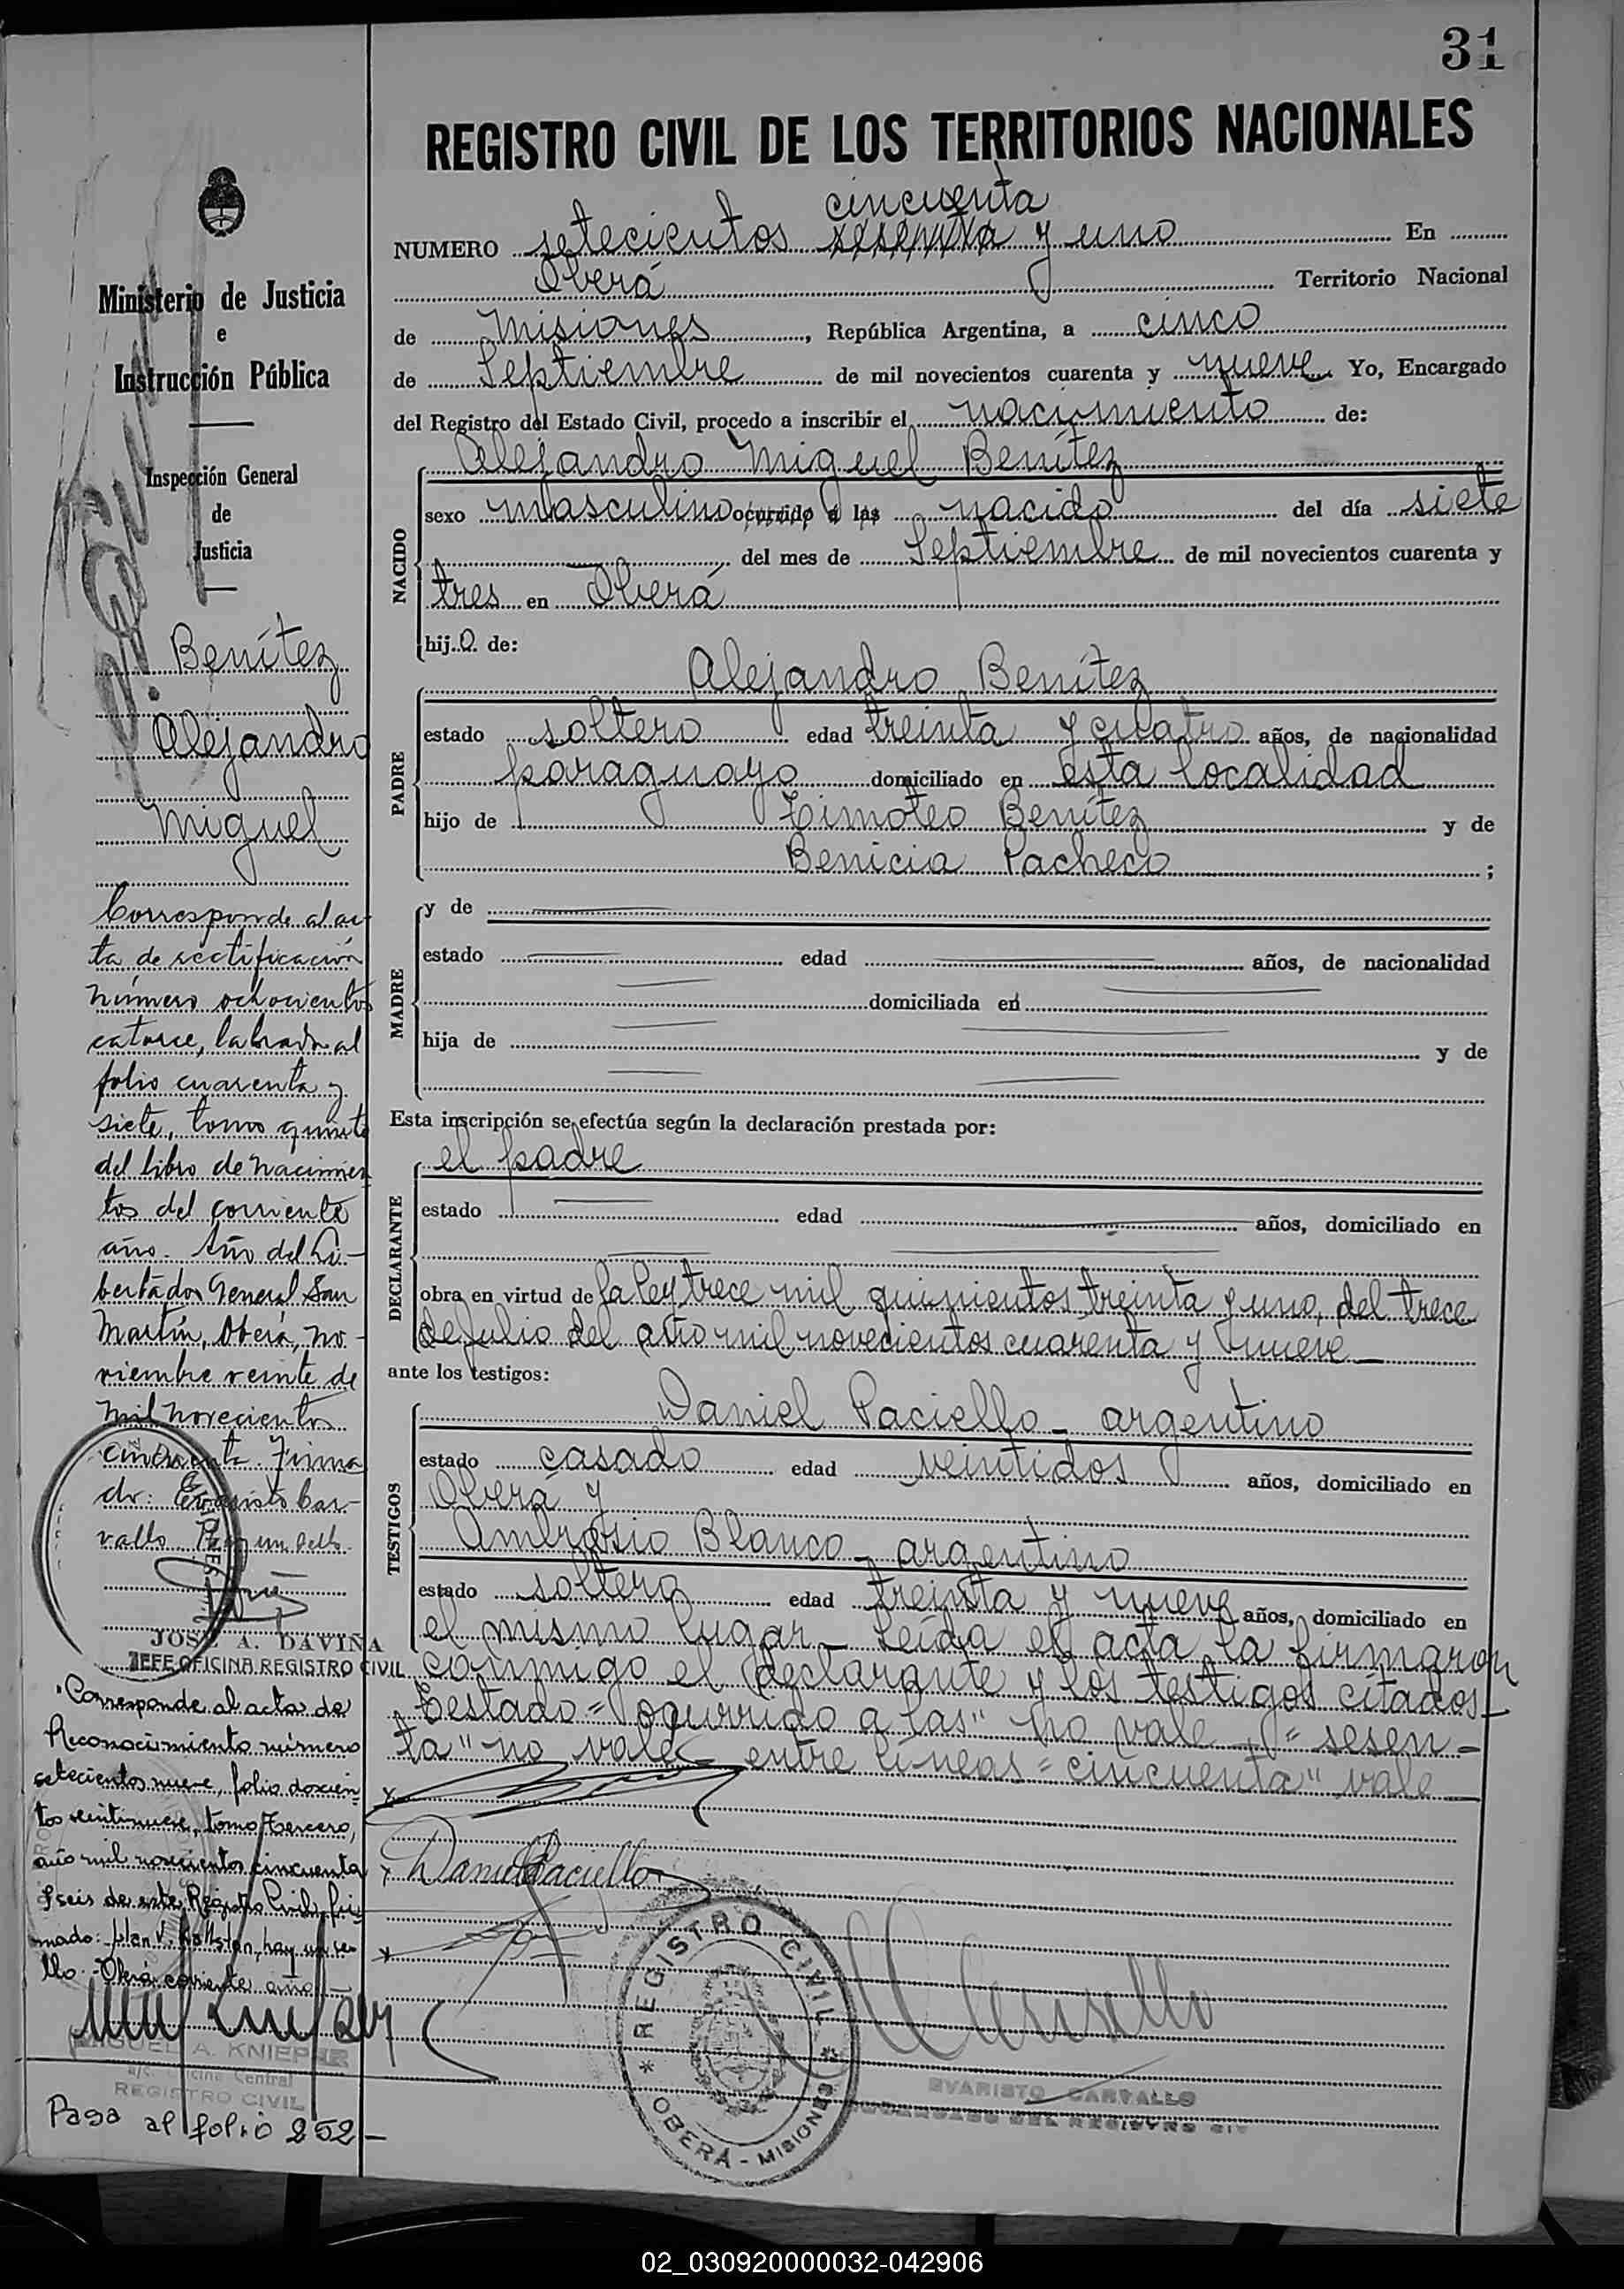 31
REGISTRO CIVIL DE LOS TERRITORIOS NACIONALES
cincuenta
NUMERO setecientos sesenta y uno En
Oberá Territorio Nacional
de Misiones, República Argentina, a cinco
de Septiembre de mil novecientos cuarenta y nueve Yo, Encargado
del Registro del Estado Civil, procedo a inscribir el nacimiento de:
NACIDO
Alejandro Miguel Benítez
sexo masculino ocurrido a las nacido del día siete
del mes de Septiembre de mil novecientos cuarenta y
tres en Oberá
hij o de:
PADRE
Alejandro Benítez
estado soltero edad treinta y cuatro años, de nacionalidad
paraguayo domiciliado en esta localidad
hijo de Timoteo Benítez y de
Benicia Pacheco ;
MADRE
y de
estado edad años, de nacionalidad
domiciliada en
hija de y de
Esta inscripción se efectúa según la declaración prestada por:
DECLARANTE
el padre
estado edad años, domiciliado en
obra en virtud de la ley trece mil quinientos treinta y uno, del trece
de Julio del año mil novecientos cuarenta y nueve
ante los testigos:
TESTIGOS
Daniel Paciello - argentino
estado casado edad veintidos años, domiciliado en
Oberá y
Ambrosio Blanco - argentino
estado soltero edad treinta y nueve años, domiciliado en
el mismo lugar - Leída el acta la firmaron
conmigo el declarante y los testigos citados -
Testado = "ocurrido a las" no vale - "= sesen-
ta" no vale - entre líneas = cincuenta" vale -
x
x Daniel Paciello
x
REGISTRO CIVIL
* OBERÁ - MISIONES *
EVARISTO CARVALLO
ENCARGADO DEL REGISTRO CIVIL
Ministerio de Justicia
e
Instrucción Pública
Inspección General
de
Justicia
Benítez
Alejandro
Miguel
Corresponde al ac-
ta de rectificación
número ochocientos
catorce, labrada al
folio cuarenta y
siete, tomo quinto
del libro de nacimien
tos del corriente
año. Año del Li-
bertador General San
Martín, Oberá, no-
viembre veinte de
mil novecientos
cincuenta. Firma
do: Evaristo Car-
vallo. Hay un sello
JOSE A. DAVIÑA
JEFE OFICINA REGISTRO CIVIL
Corresponde al acta de
Reconocimiento número
setecientos nueve, folio doscien
tos veintinueve, tomo Tercero,
año mil novecientos cincuenta
y seis de este Registro Civil, fir
mado: hay un se
llo. - Oberá corriente año -
MIGUEL A. KNIEPER
a/c. Oficina Central
REGISTRO CIVIL
Pasa al folio 252 -
02_030920000032-042906